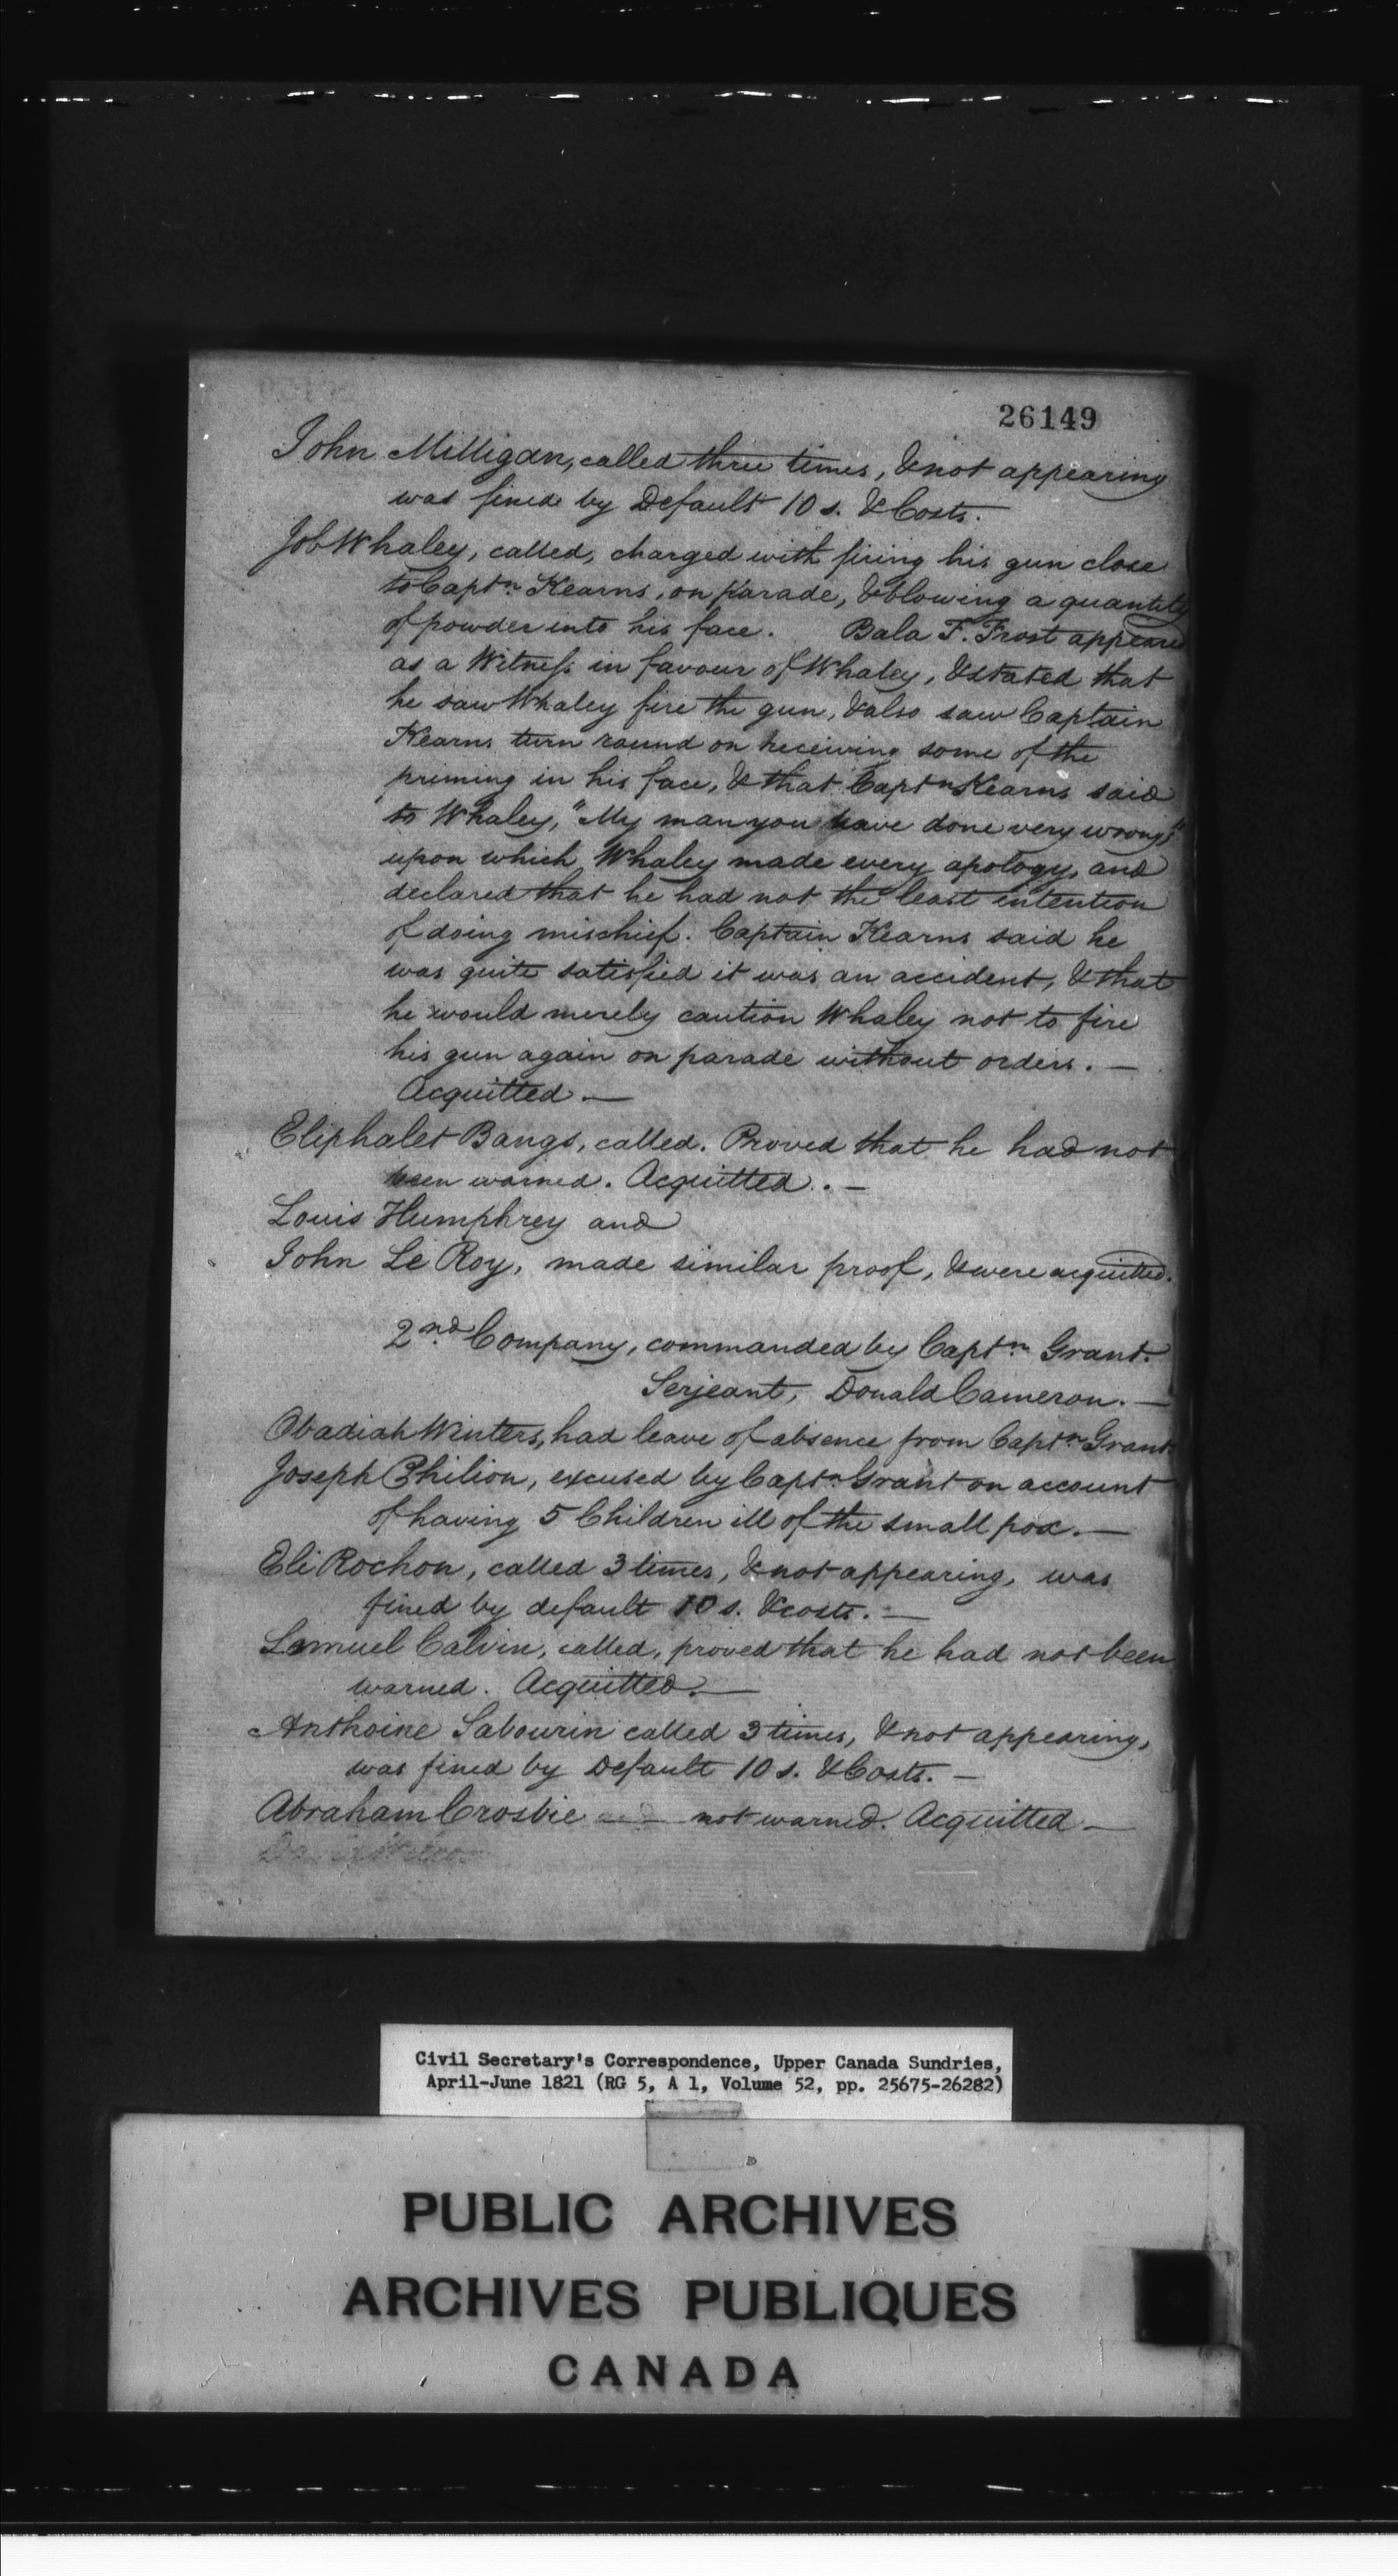 26149
John Milligan, called three times, & not appearing
was fined by Default 10 s. & Costs.
Job Whaley, called, charged with firing his gun close
to Captn. Kearns, on parade, & blowing a quantity
of powder into his face. Bala F. Frost appeared
as a Witness in favour of Whaley, & stated that
he saw Whaley fire the gun, & also saw Captain
Kearns turn round on receiving some of the
priming in his face, & that Captn Kearns said
to Whaley, "My man you have done very wrong,"
upon which Whaley made every apology, and
declared that he had not the least intention
of doing mischief. Captain Kearns said he
was quite satisfied it was an accident, & that
he would merely caution Whaley not to fire
his gun again on parade without orders. —
Acquitted. —
Eliphalet Bangs, called. Proved that he had not
been warned. Acquitted. —
Louis Humphrey and
John Le Roy, made similar proof, & were acquitted.
2nd. Company, commanded by Captn. Grant.
Serjeant, Donald Cameron. —
Obadiah Winters, had leave of absence from Captn. Grant
Joseph Philion, excused by Captn. Grant on account
of having 5 Children ill of the small pox. —
Eli Rochon, called 3 times, & not appearing, was
fined by default 10 s. & costs. —
Lemuel Calvin, called, proved that he had not been
warned. Acquitted. —
Anthoine Sabourin called 3 times, & not appearing,
was fined by Default 10 s. & Costs. —
Abraham Crosbie not warned. Acquitted —
Civil Secretary's Correspondence, Upper Canada Sundries,
April-June 1821 (RG 5, A 1, Volume 52, pp. 25675-26282)
PUBLIC ARCHIVES
ARCHIVES PUBLIQUES
CANADA